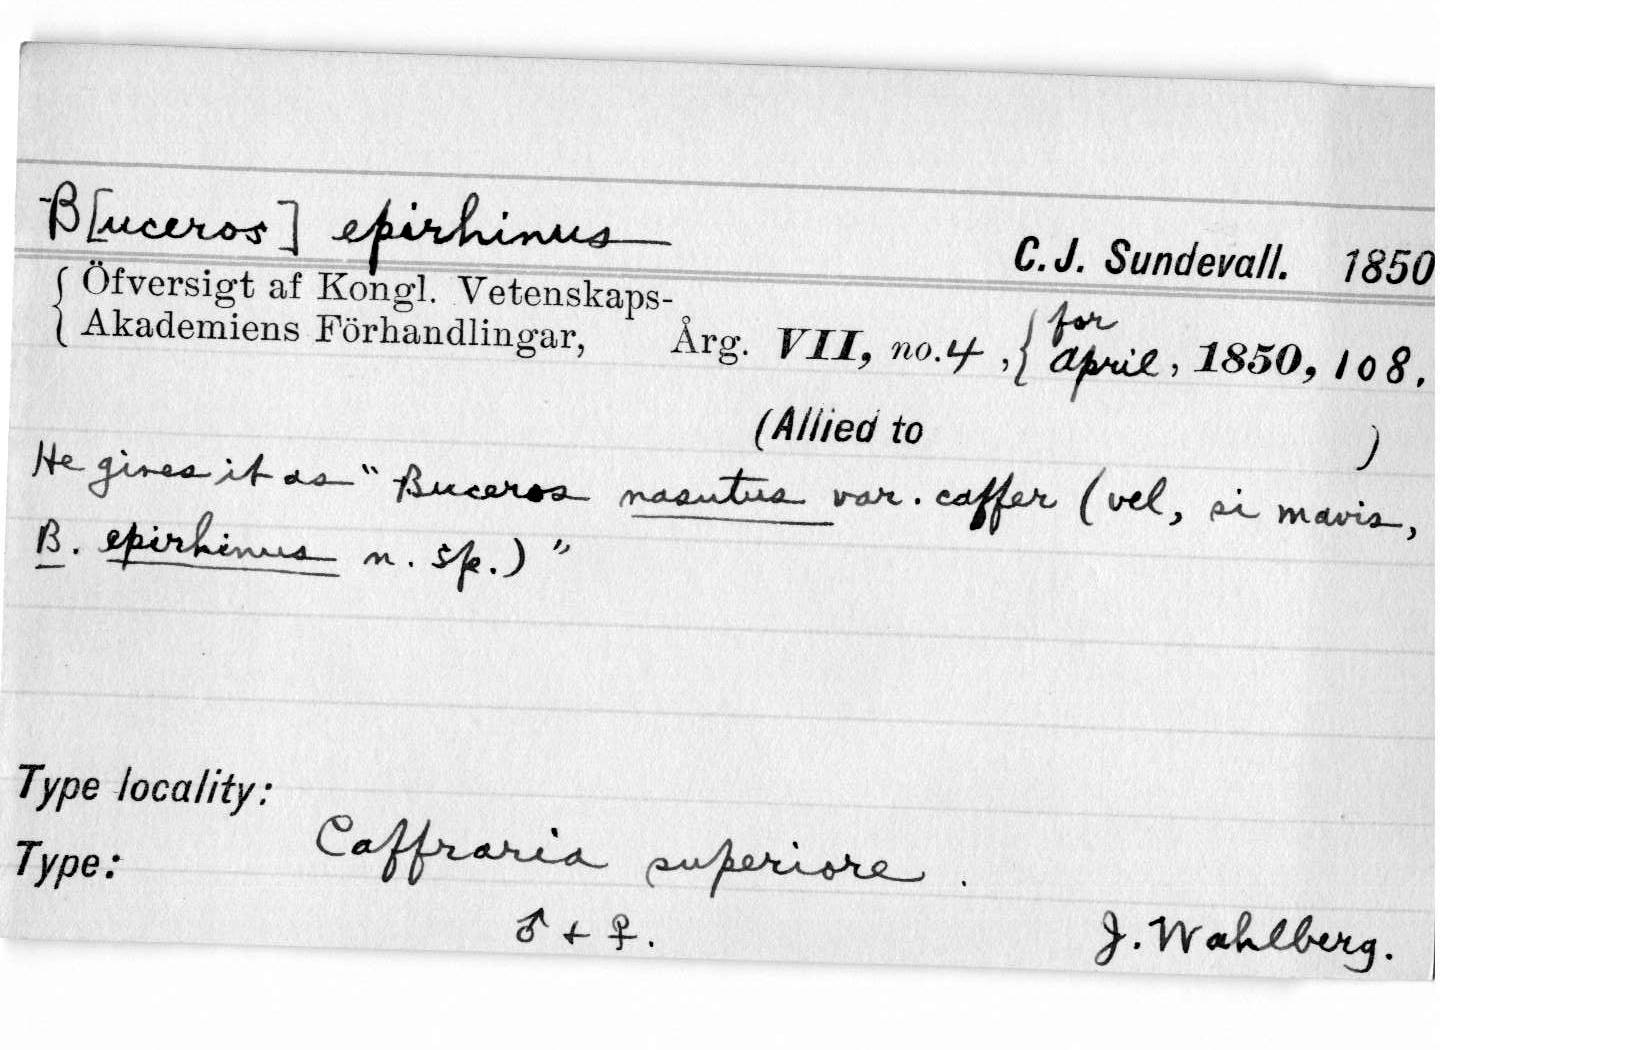 B[uceros] epirhinus C.J. Sundevall. 1850
{ Öfversigt af Kongl. Vetenskaps-
{ Akademiens Förhandlingar, Årg. VII, no. 4, { for April, 1850, 108.
(Allied to )
He gives it as "Buceros nasutus var. caffer (vel, si mavis,
B. epirhinus n. sp.)"
Type locality:
Caffraria superiore.
Type:
♂ + ♀. J. Wahlberg.